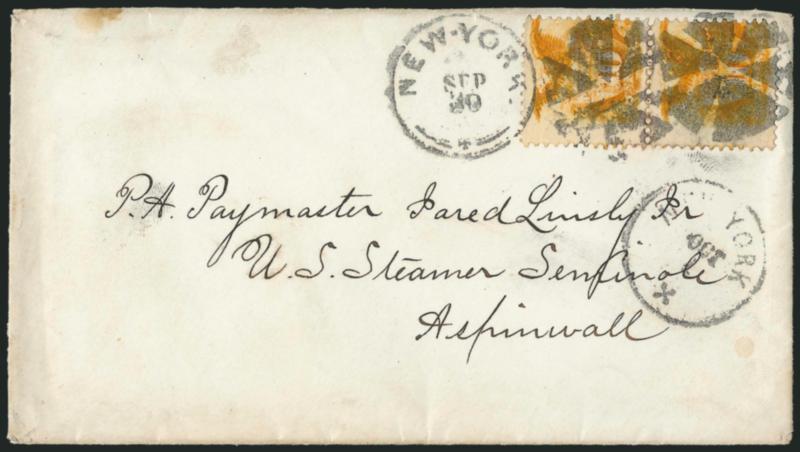 NEW-YORK.
SEP
20
P.A. Paymaster Jared Linsly Jr
U.S. Steamer Seminole
Aspinwall
YORK
OCT